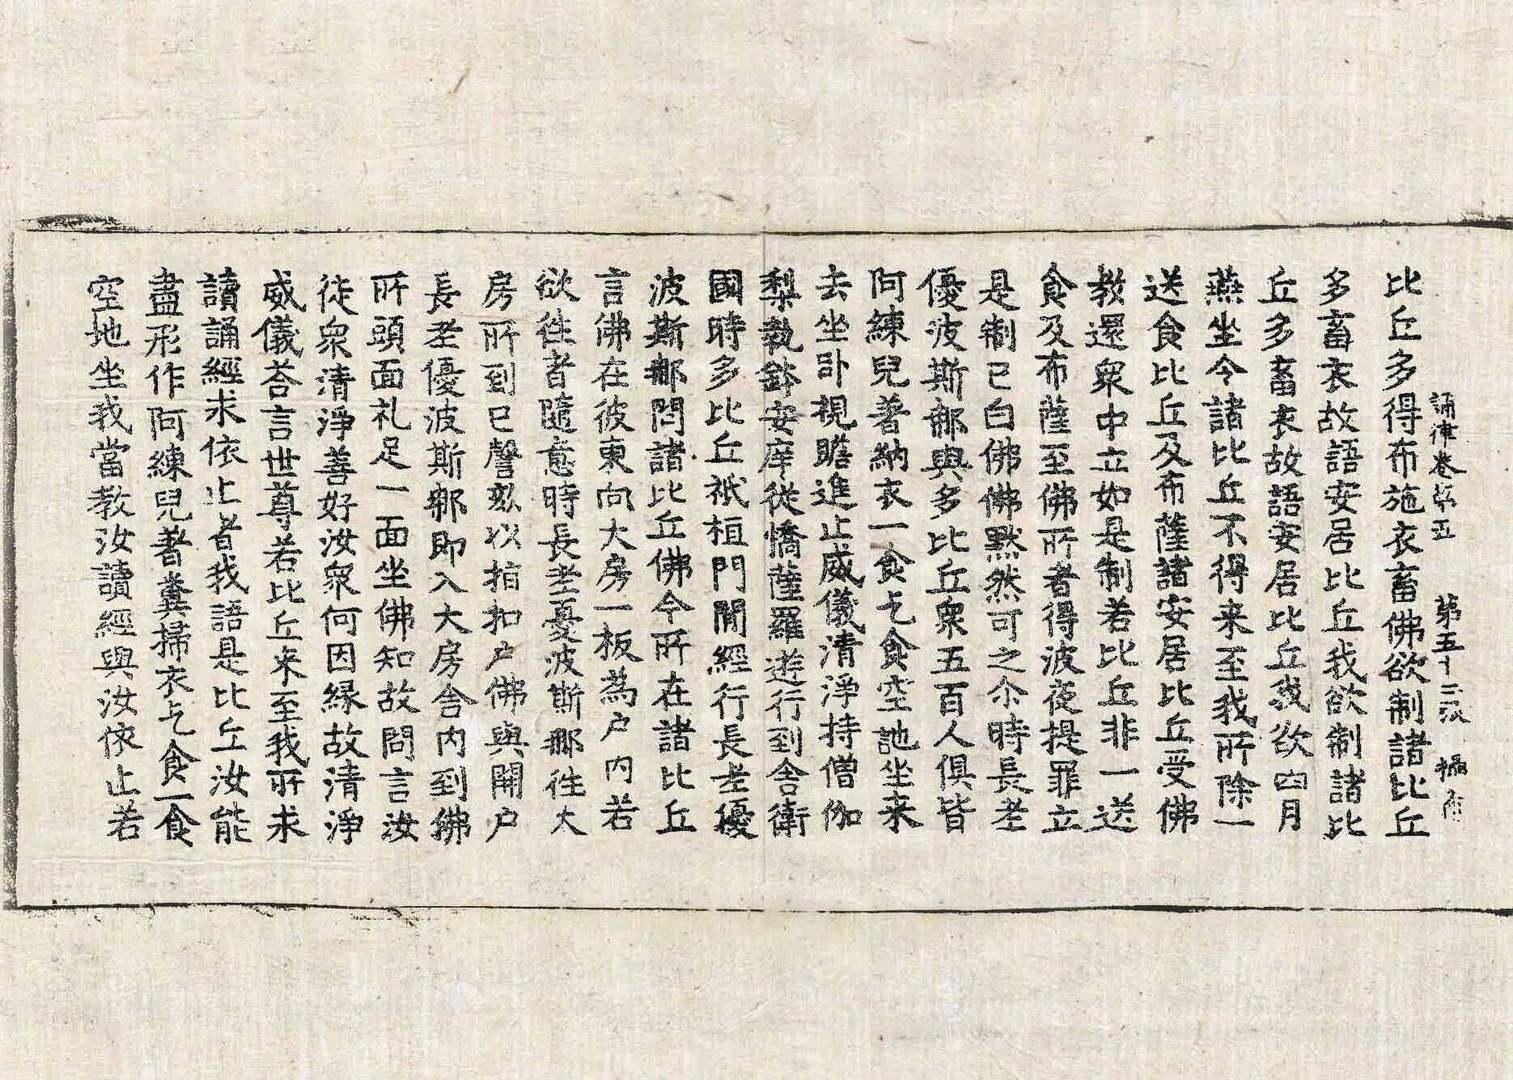 誦律卷第五 第五十三張 攝
比丘多得布施衣畜佛欲制諸比丘
多畜衣故語安居比丘我欲制諸比
丘多畜衣故語安居比丘我欲四月
燕坐令諸比丘不得来至我所除一
送食比丘及布薩諸安居比丘受佛
教還衆中立如是制若比丘非一送
食及布薩至佛所者得波夜提罪立
是制已白佛佛黙然可之尒時長老
優波斯那與多比丘衆五百人俱皆
阿練兒著納衣一食乞食空地坐来
去坐卧視瞻進止威儀清淨持僧伽
梨執鉢安庠從憍薩羅遊行到舍衛
國時多比丘祇桓門間經行長老優
波斯那問諸比丘佛今所在諸比丘
言佛在彼東向大房一板為户内若
欲徃者隨意時長老憂波斯那徃大
房所到已謦欬以指扣户佛與開户
長老優波斯那即入大房舍内到佛
所頭面礼足一面坐佛知故問言汝
徒衆清淨善好汝衆何因縁故清淨
威儀荅言世尊若比丘来至我所求
讀誦經求依止者我語是比丘汝能
盡形作阿練兒著糞掃衣乞食一食
空地坐我當教汝讀經與汝依止若